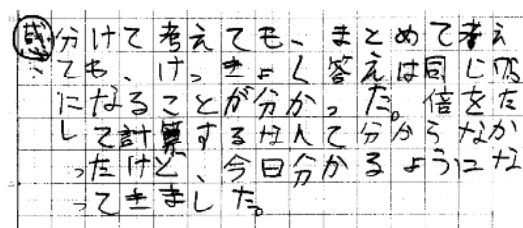 感 分けて考えても、まとめて考え
ても、けっきょく答えは同じ
になることが分かった。倍をた
して計算するなんて分からなか
ったけど、今日分かるようにな
ってきました。